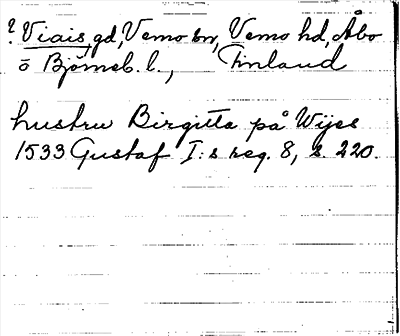 ? Viais gd, Vemo sn, Vemo hd, Åbo
o Björneb. l., Finland
hustru Birgitta på Wijes
1533 Gustaf I:s reg. 8, s. 220.